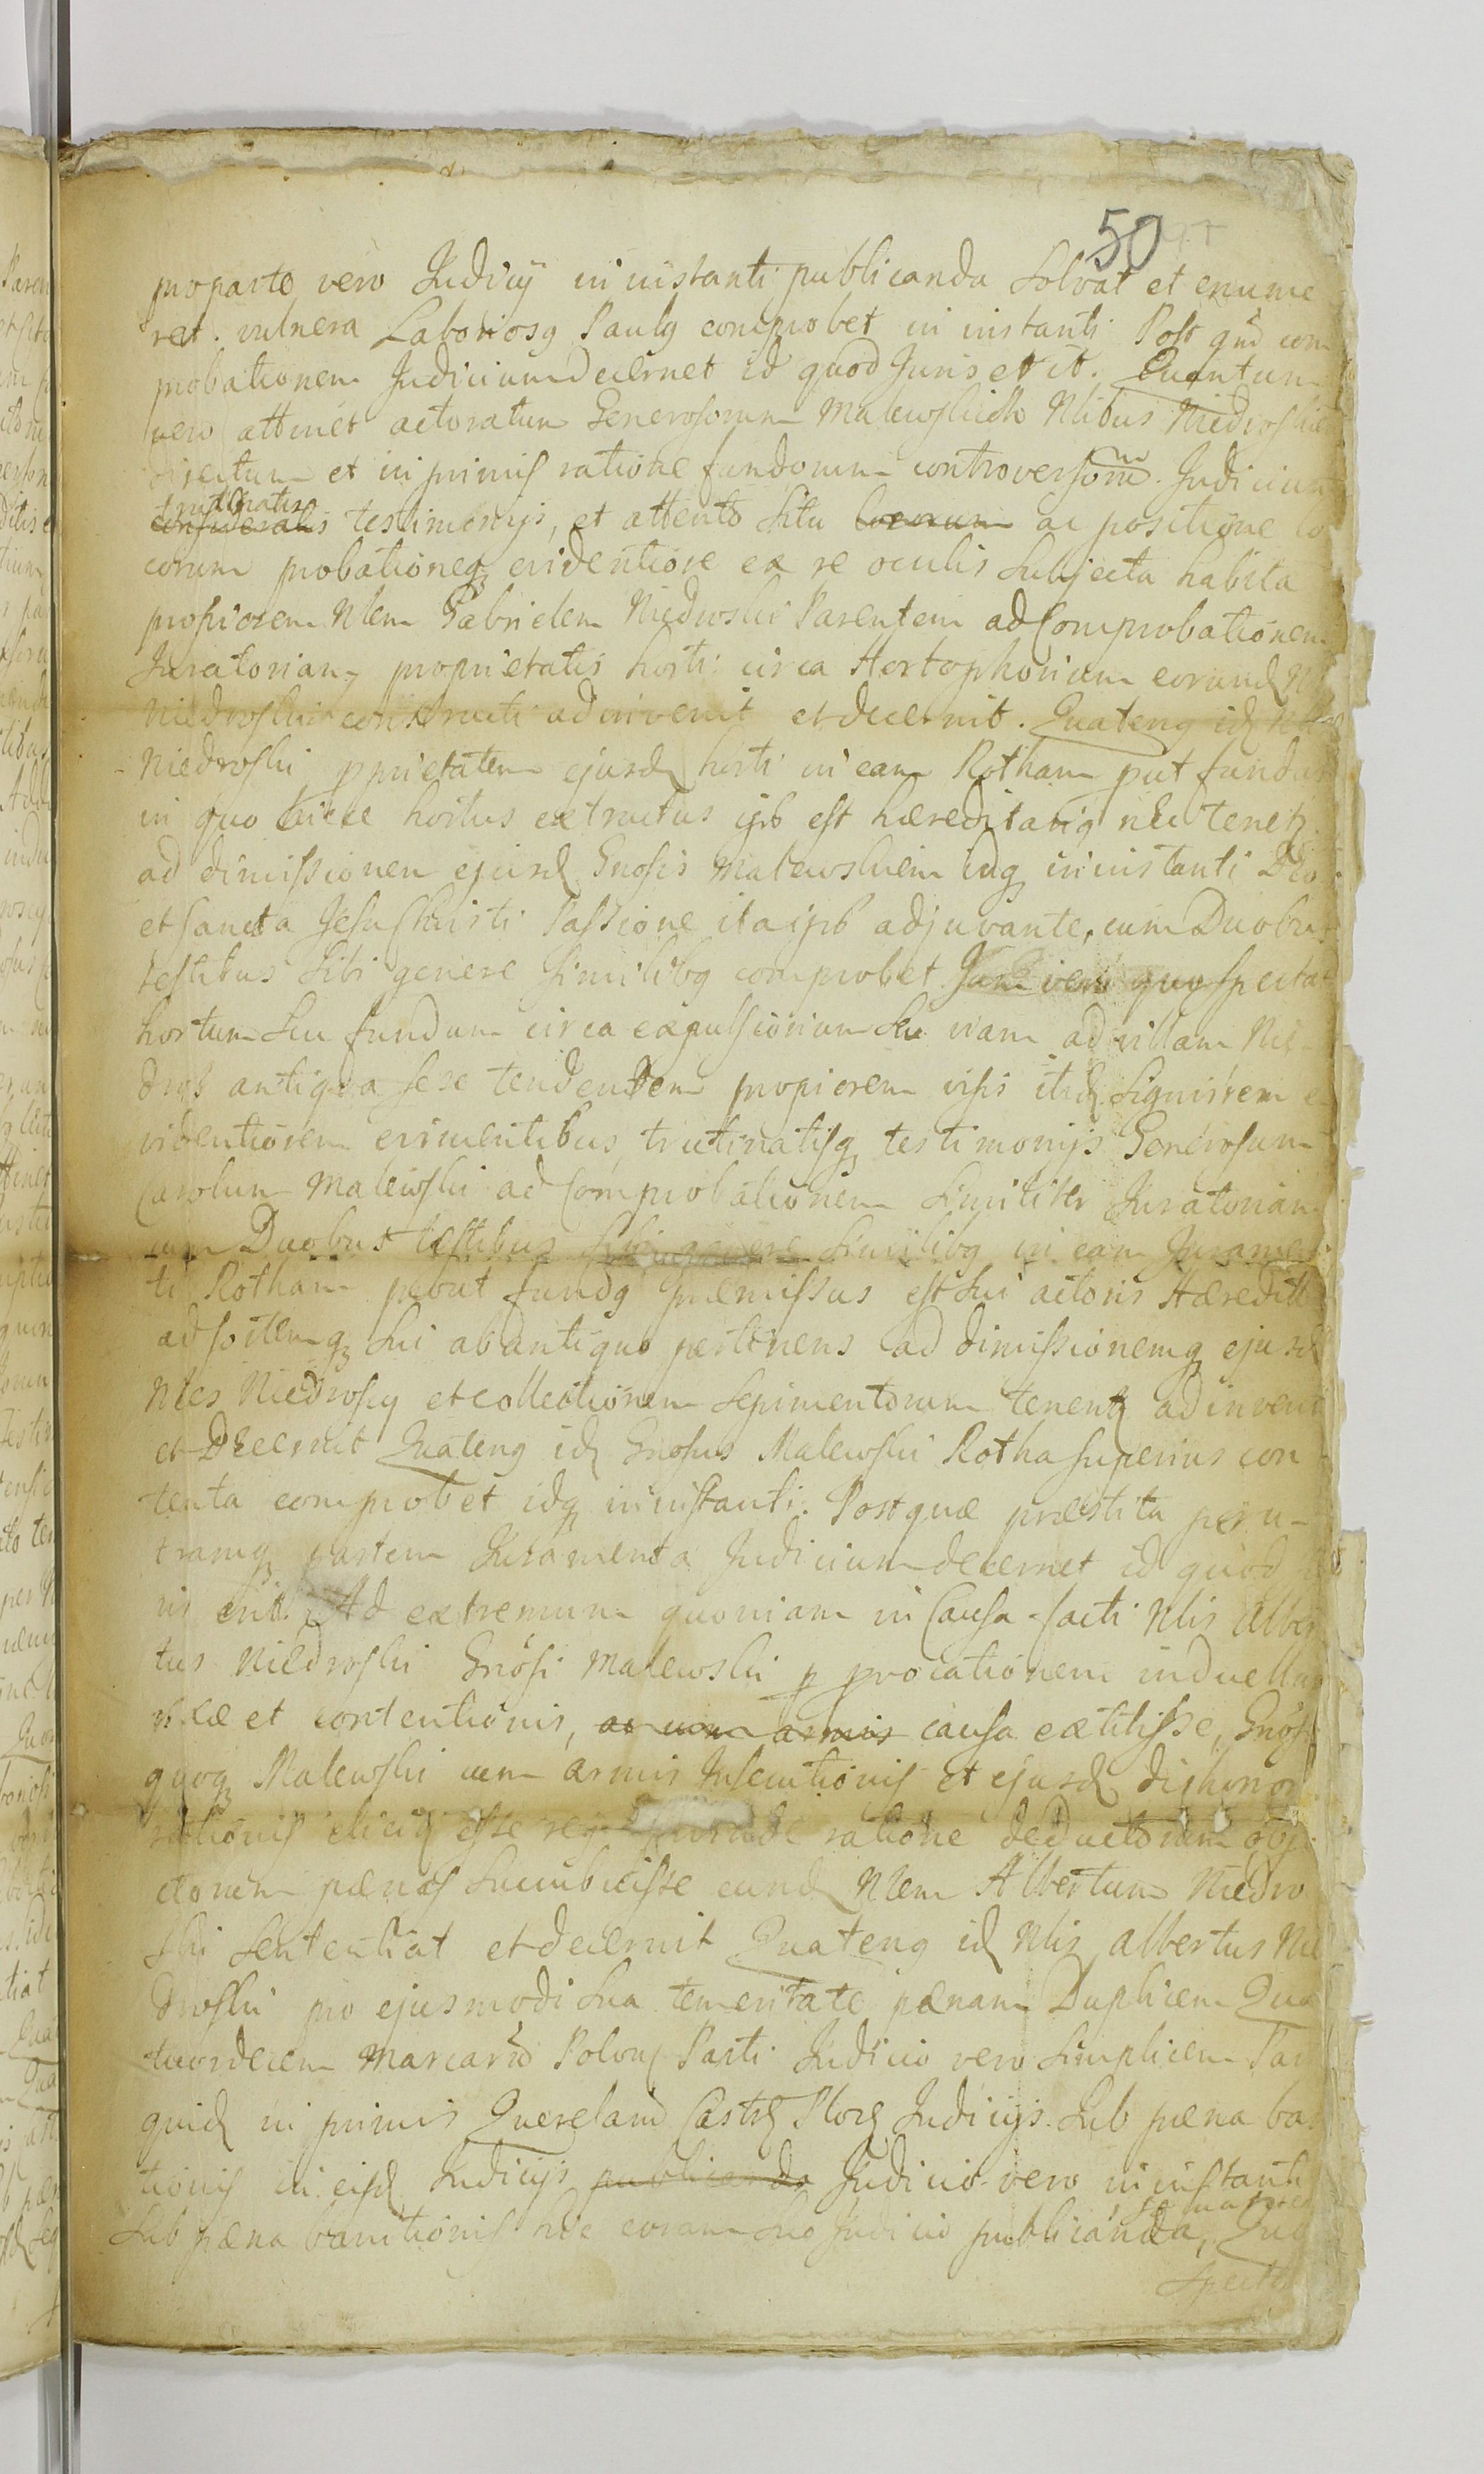 50
pro parte vero Judicij in instanti publicanda Solvat et enume
ret. vulnera Laboriosg Paulg comprobet in instanti Post qnd com
probationem Judicium Decernet id quod Juris erit. Quantum
vero attinet actoratum Generosorum Malewskich Nlibus Niedroskie
et in primis ratione fundorum controversorum. Judicium
trutinatis testimonijs, et attento Situ locorum ac positione lo
corum probationeq evidentiore ex re oculis Subjecta habita
propiorem Nlem Gabrielem Niedroski Parentem ad Comprobationem
Juratoriam proprietatis horti circa Hortophorium eorund
Niedroskie constructi adinvenit et decernit. Quateng id
Niedroski pprietatem ejusd horti in eam Rotham put fundus
in quo hicce hortus extructus ips est hæreditarig nec tenetr
ad dimissionem ejusd Gnosis Malewskiem idq in instanti Deo
et Sancta Jesu Christi Passione ita ips adjuvante, cum Duobus
testibus Sibi genere Similibg comprobet Jam vero quog Spectat
hortum Seu fundum circa expulsorium Seu viam ad villam Nie
dros antiqva sese tendentem propiorem visis itid Signis rem e
videntiorem evincentibus, trutinatisq testimonijs Generosum
Carolum Malewski ad Comprobationem Similiter Juratoriam
cum Duobus testibus Sibi genere Similibg in eam Juramen
ti Rotham prout fundg præmissus est Sui actoris Hæredit
ad Sortemq Sui ab antiquo pertinens ad dimissionemq ejusd
Nles Niedroscy et collectionem Sepimentorum tenentr adinvenit
et Decernit Quateng id Gnosus Malewski Rotha superius con
tenta comprobet idq in instanti. Post quæ præstita per u-
tramq partem Juramenta Judicium decernet id quod Ju
ris erit. Ad extremum quoniam in Causa facti Nlis Alber
tus Niedroski Gnosi Malewski p provocationem in duellum
rixæ et contentionis, ac cum armis causa extitisse, Gnosi
quoq Malewski cum armis Insecutionis et ejusd dishonor
ationis esse ratione deductorum obj
ctorum pænas Sucubuisse eund Nlem Albertum Niedro
Ski Sententiat et decernit Quateng id Nlis Albertus Nie
droski pro ejusmodi Sua temeritate pænam Duplicem Qua
tuordecem Marcard Polon Parti Judicio vero Simplicem Par
quid in primis Quereland Castr Ploc Judicijs Sub pæna ban
tionis in eisd Judicijs publicanda Judicio vero in instanti
Sub pæna banitionis hic coram Suo Judicio publicanda, Quo
Specta